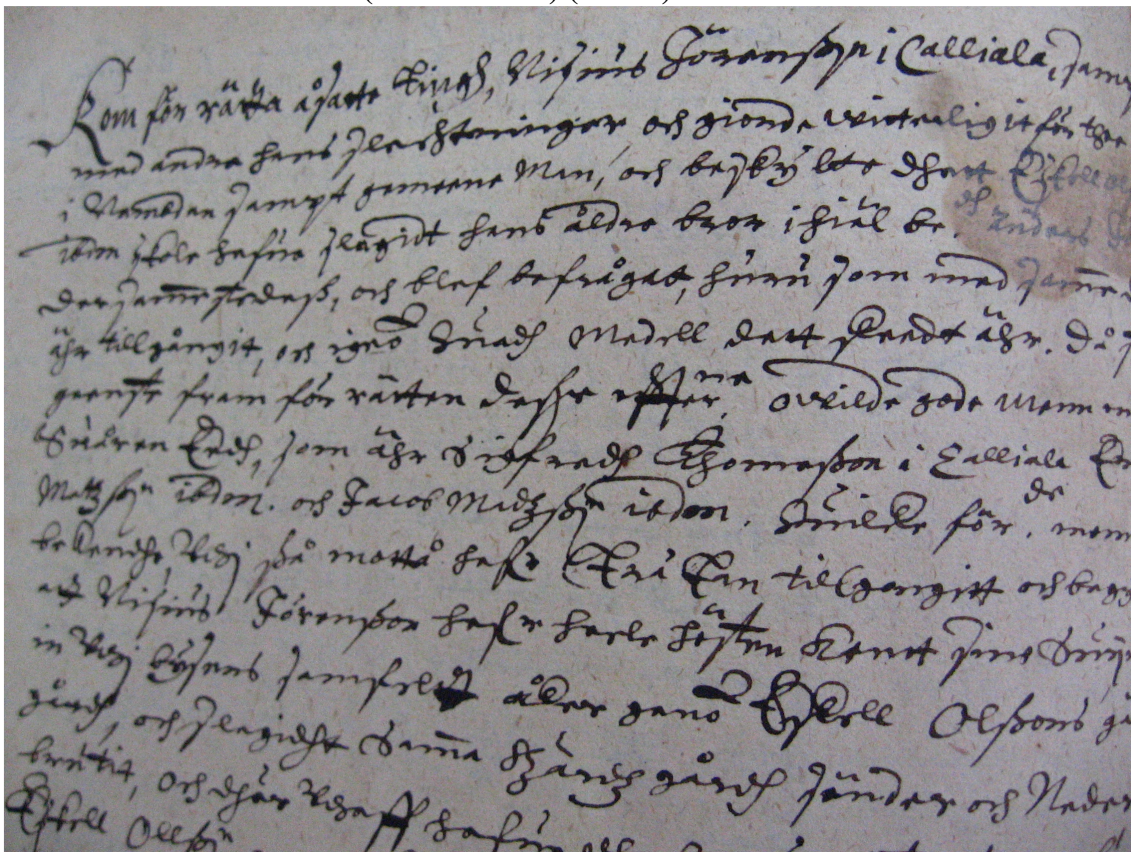 Kom för rätta åsatte Tingh, Nisius Jörensson i Calliala, samp
med andre hans slechtninger och giorde witterligit för the
i Nembden sampt gemene Man, och beskylte dhett Eskell Ol
ibdm skole hafue slagidt hans äldre bror i hiäl be. och Anders
dersammestedess, och blef befrågatt, huru som med samme
ähr tillgångit, och igenō huadh Medell dett skeedt ähr. Då
geenst fram för rätten desse owilde gode Menn
Suären Eedh, som ähr Sigfredh Thomasson i Calliala
Mattzson ibdm. och Jacob Madzson ibdm. huilke för. de
bekendhe, Udj så motto hafr Träten tilgongitt och begg
att Nisius Jörensson hafr heele hösten kentt sine Suijn
in Udj bysens samfeldt åker genō Eskell Olssons gä
gårdh, och slagidht samma gärdz gårdh sönder och Neder
brutit, och dhär Udhaff hafue
Eskell Ollsson